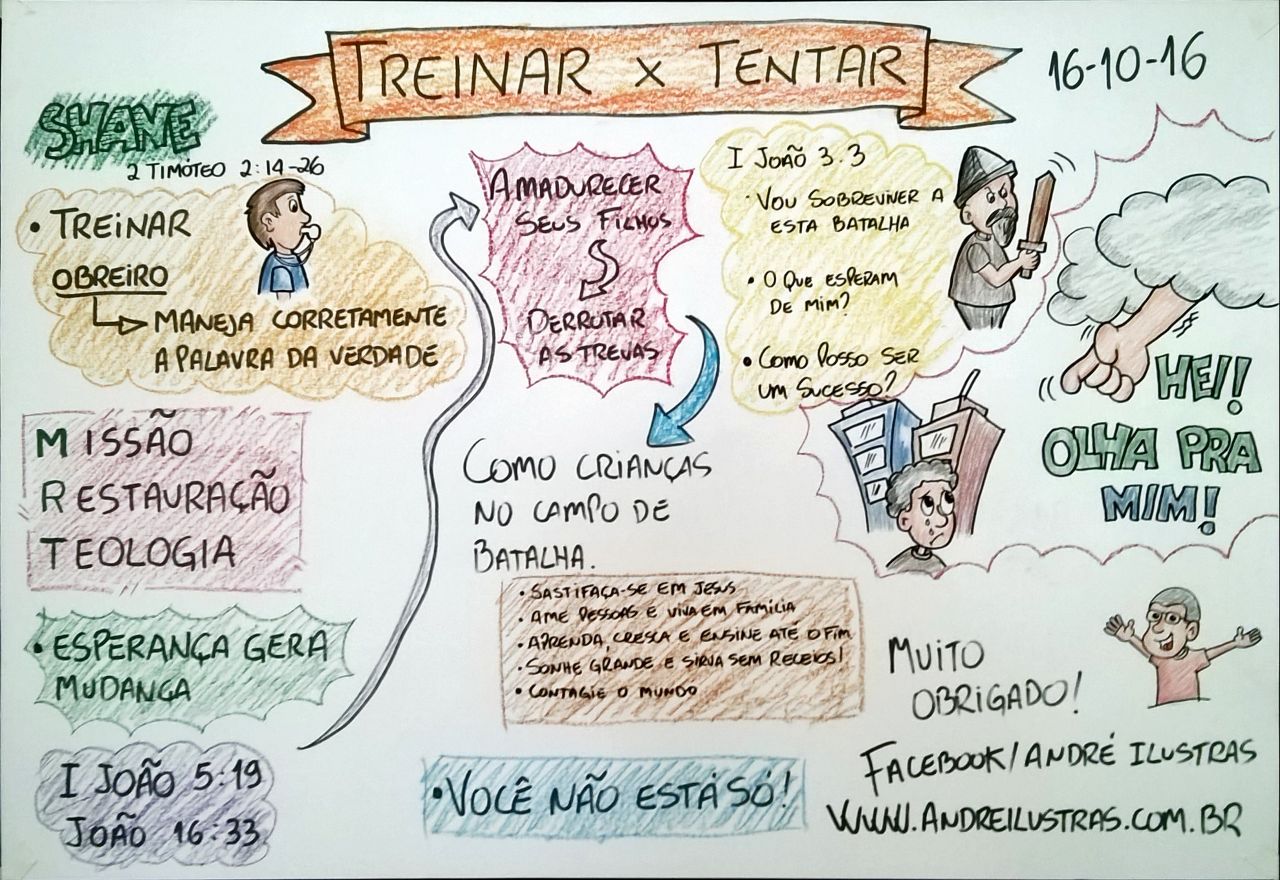 TREINAR x TENTAR
16-10-16
SHANE
2 TIMÓTEO 2:14-26
• TREINAR
OBREIRO
MANEJA CORRETAMENTE
A PALAVRA DA VERDADE
MISSÃO
RESTAURAÇÃO
TEOLOGIA
• ESPERANÇA GERA
MUDANÇA
I JOÃO 5:19
JOÃO 16:33
AMADURECER
SEUS FILHOS
DERRUTAR
AS TREVAS
COMO CRIANÇAS
NO CAMPO DE
BATALHA.
• SASTIFAÇA-SE EM JESUS
• AME PESSOAS E VIVA EM FAMÍLIA
• APRENDA, CRESCA E ENSINE ATÉ O FIM
• SONHE GRANDE E SIRVA SEM RECEIOS!
• CONTAGIE O MUNDO
• VOCÊ NÃO ESTÁ SÓ!
I JOÃO 3.3
• VOU SOBREVIVER A
ESTA BATALHA
• O QUE ESPERAM
DE MIM?
• COMO POSSO SER
UM SUCESSO?
HEI!
OLHA PRA
MIM!
MUITO
OBRIGADO!
FACEBOOK/ANDRÉ ILUSTRAS
WWW.ANDREILUSTRAS.COM.BR